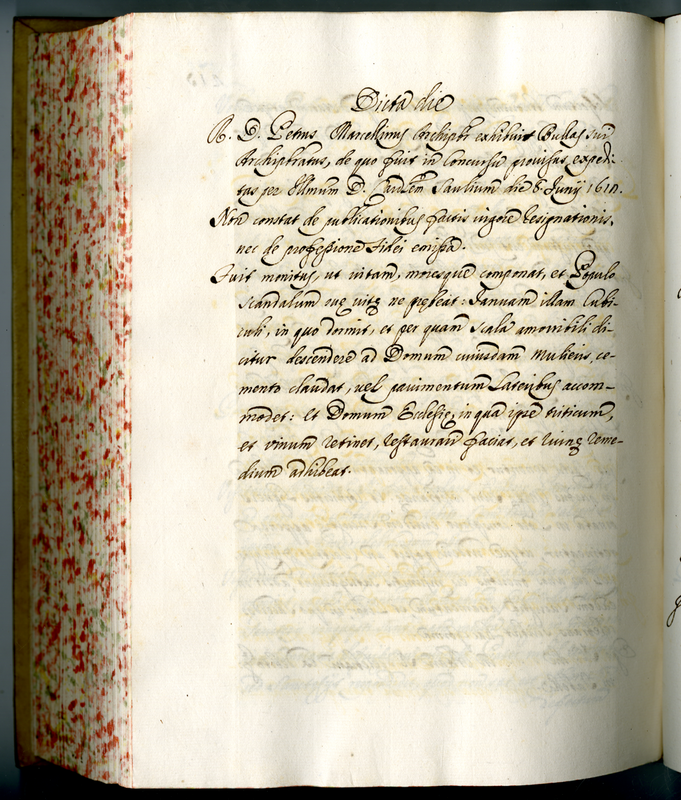 Dicta die
R. D. Petrus Marcellinus Archipbr exhibuit Bullas sui
Archipbratus, de quo fuit in concursu provisus, exped:
tas per Illmum D. Cardlem Saulium die 6 Junij 1610.
Non constat de publicationibus factis vigore resignationis,
nec de professione fidei emissa.
Fuit monitus, ut vitam, moresque componat, et Populo
scandalum suę vitę ne prębeat: Januam illam Cubi-
culi, in quo dormit, et per quam scala amovibili di-
citur descendere ad Domum cuiusdam Mulieris, ce-
mento claudat, vel pavimentum Lateribus accom-
modet: et Domum Ecclesię, in qua ipse triticum,
et vinum retinet, restaurari faciat, et ruinę reme-
dium adhibeat.